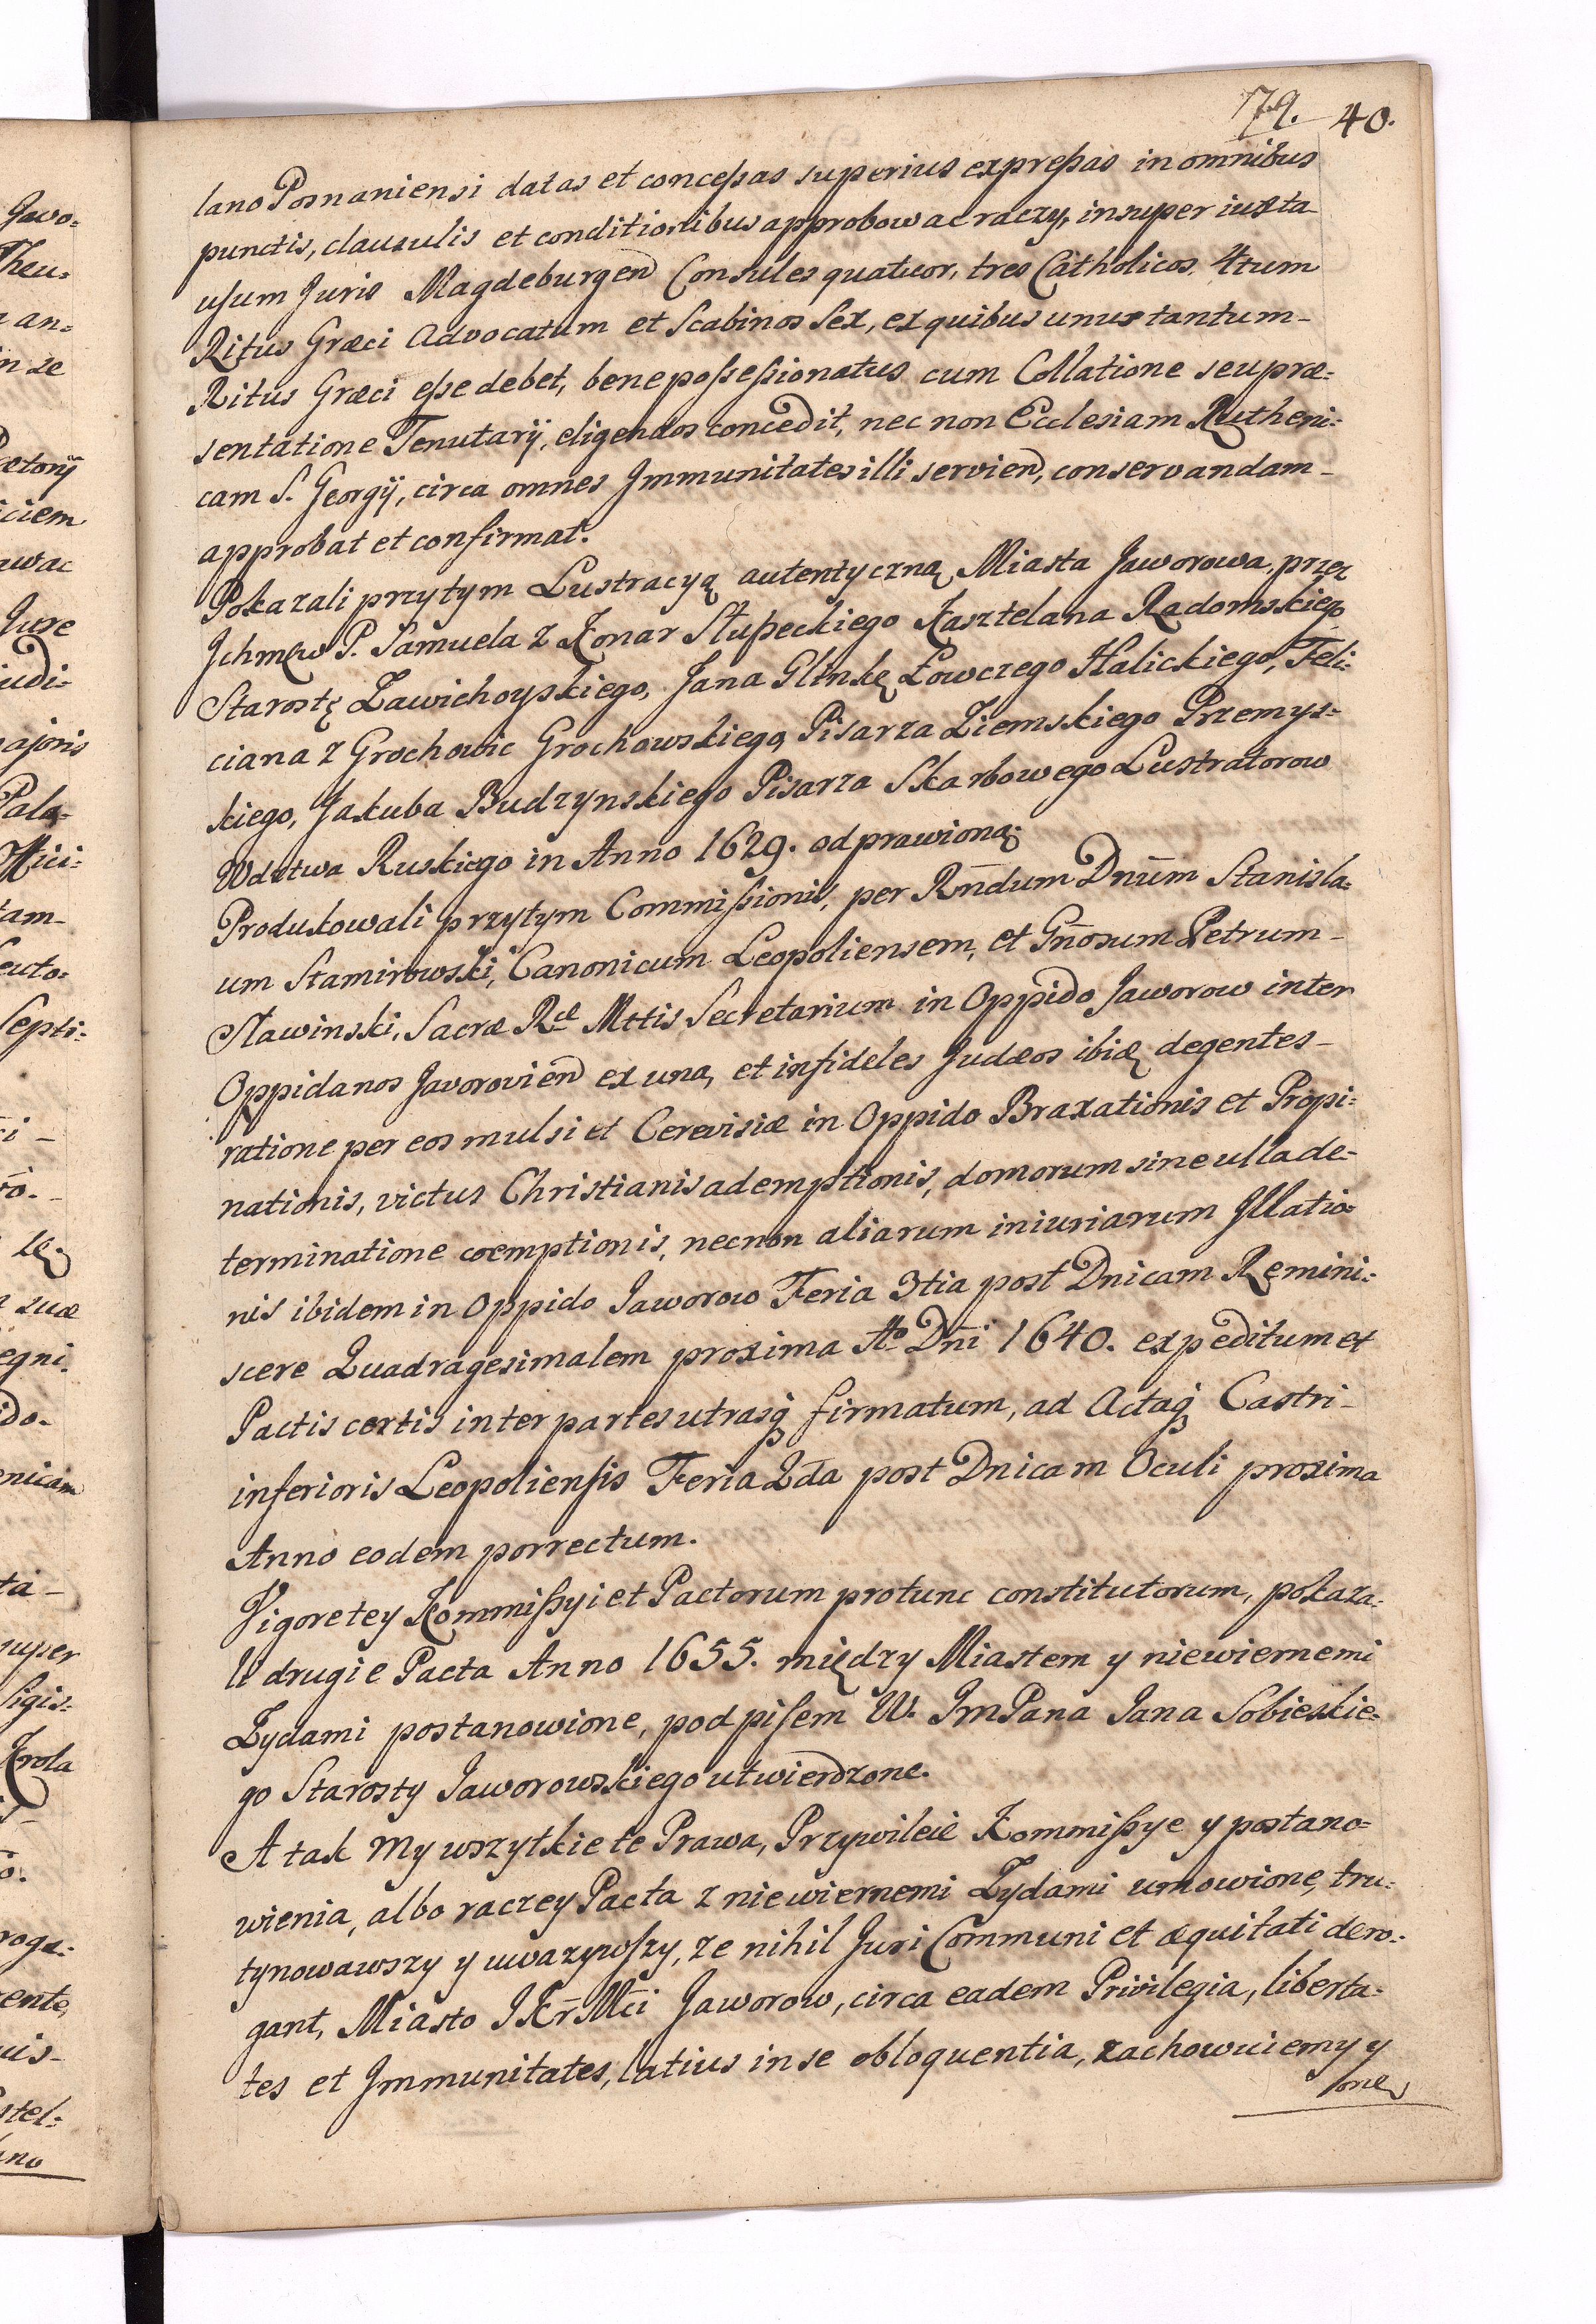 79. 40.
lano Posnaniensi datas et concessas superius expressas in omnibus
punctis, clausulis et conditionibus approbowac raczy, insuper iuxta
usum Juris Magdeburgen Consules quatuor, tres Catholicos, 4tum
Ritus Græci Advocatum et Scabinos Sex, ex quibus unus tantum-
Ritus Græci esse debet, bene possessionatus cum Collatione seu præ=
sentatione Tenutarij, eligendos concedit, nec non Ecclesiam Rutheni=
cam S. Georgij, circa omnes Jmmunitates illi servien, conservandam-
approbat et confirmat.
Pokazali przytym Lustracyą autentyczną Miasta Jaworowa, przez
Jchmęw P. Samuela z Konar Słupeckiego Kasztelana Radomskiego
Starostę Zawichoyskiego, Jana Glinkę Łowczego Halickiego, Feli=
ciana z Grochowic Grochowskiego, Pisarza Ziemskiego Przemys=
kiego, Jakuba Budzynskiego Pisarza Skarbowego Lustratorow
Wdztwa Ruskiego in Anno 1629. odprawioną.
Produkowali przytym Commissionis, per Rndum Dnum Stanisla=
um Stamirowski, Canonicum Leopoliensem, et Gnosum Petrum-
Sławinski, Sacræ Ræ Mttis Secretarium in Oppido Jaworow inter
Oppidanos Javorovien ex una, et infideles Judæos ibią degentes-
ratione per eos mulsi et Cerevisiæ in Oppido Braxationis et Propi=
nationis, victus Christianis ademptionis, domorum sine ulla de=
terminatione coemptionis, necnon aliarum iniuriarum Jllatio=
nis ibidem in Oppido Jaworow Feria 3tia post Dnicam Remini=
scere Quadragesimalem proxima Ao Dni 1640. expeditum et
Pactis certis inter partes utrasq firmatum, ad Actaq Castri-
inferioris Leopoliensis Feria 2da post Dnicam Oculi proxima
Anno eodem porrectum.
Vigore tey Kommissyi et Pactorum protunc constitutorum, pokaza=
li drugie Pacta Anno 1655. między Miastem y niewiernemi
Zydami postanowione, podpisem W. JmPana Jana Sobieskie=
go Starosty Jaworowskiego utwierdzone.
A tak My wszytkie te Prawa, Przywileie Kommissye y postano=
wienia, albo raczey Pacta z niewiernemi Zydami umowione, tru=
tynowawszy y uwazywszy, ze nihil Juri Communi et æquitati dero=
gant, Miasto JKr Mci Jaworow, circa eadem Privilegia, liberta=
tes et Jmmunitates, latius in se obloquentia, zachowuiemy y
one